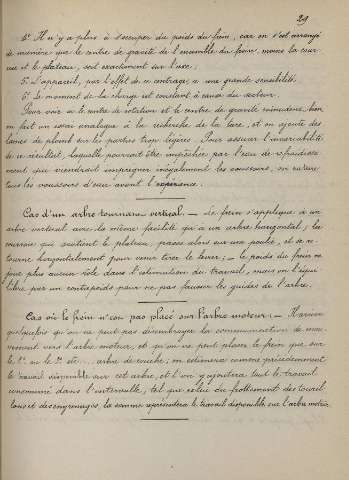 29
4º Il n'y a plus à s'occuper du poids du frein, car on s'est arrangé
de manière que le centre de gravité de l'ensemble du frein, moins la cour-
roie et le plateau, soit exactement sur l'axe.
5º L'appareil, par l'effet de ce centrage, a une grande sensibilité.
6º Le moment de la charge est constant à cause du secteur.
Pour voir si le centre de rotation et le centre de gravité coïncident bien
on fait un essai analogue à la recherche de la tare, et on ajoute des
lames de plomb sur les parties trop légères. Pour assurer l'invariabilité
de ce résultat, laquelle pourrait être empêchée par l'eau de refroidisse-
ment qui viendrait imprégner inégalement les voussoirs, on sature
tous les voussoirs d'eau avant l'expérience.
Cas d'un arbre tournant vertical. — Le frein s'applique à un
arbre vertical avec la même facilité qu'à un arbre horizontal; la
courroie qui soutient le plateau, passe alors sur une poulie, et se re-
tourne horizontalement pour venir tirer le levier; — le poids du frein ne
joue plus aucun rôle dans l'estimation du travail, mais on l'équi-
libre par un contrepoids pour ne pas fausser les guides de l'arbre.
Cas où le frein n'est pas placé sur l'arbre moteur. — Il arrive
quelquefois qu'on ne peut pas désembrayer la communication de mou-
vement vers l'arbre moteur, et qu'on ne peut placer le frein que sur
le 1er ou le 2e etc... arbre de couche; on estimera comme précédemment
le travail disponible sur cet arbre, et l'on y ajoutera tout le travail
consommé dans l'intervalle, tel que celui du frottement des touril-
lons et des engrenages, la somme représentera le travail disponible sur l'arbre moteur.